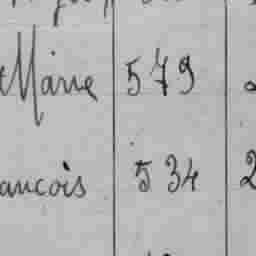 Marie 579
ancois 534 2